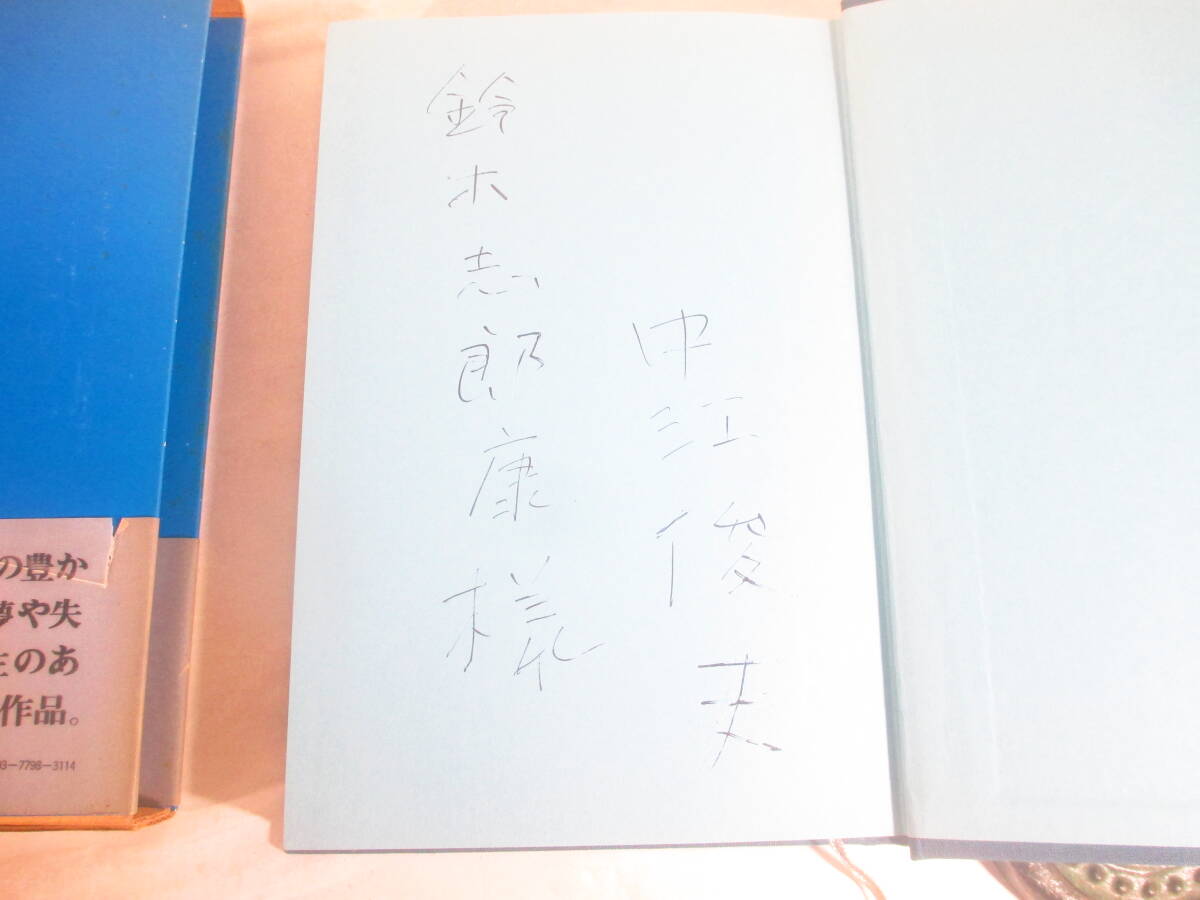 中江俊夫
鈴木志郎康様
の豊か
夢や失
生のあ
作品。
93-7796-3114